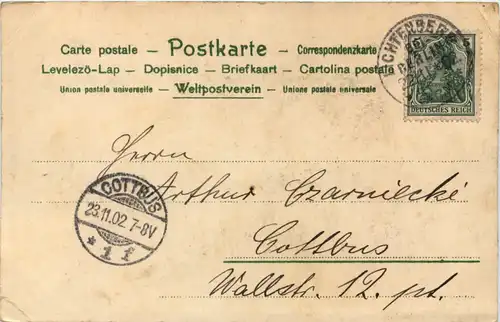 Carte postale - Postkarte - Correspondenzkarte
Levelezö-Lap - Dopisnice - Briefkaart - Cartolina postale
Union postale universelle - Weltpostverein - Unione postale universale
5
DEUTSCHES REICH
Herrn
Arthur Czarniecki
COTTBUS
23.11.02. 7-8V
* 1 f
Cottbus
Wallstr. 12. pt.